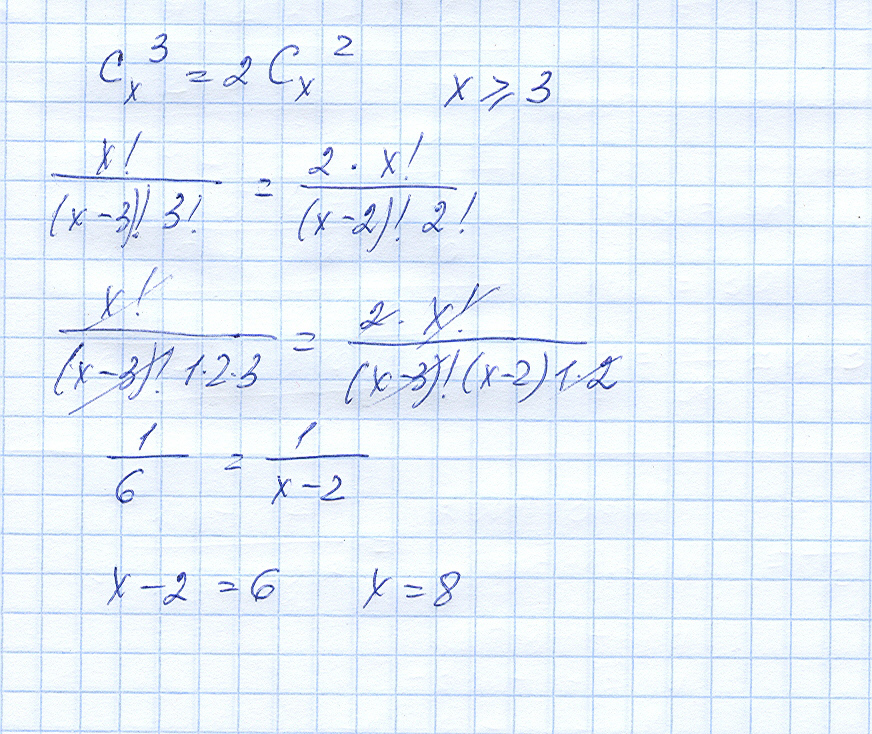 C_x^3 = 2 C_x^2    x ⩾ 3
x! / ((x-3)! 3!) = 2 · x! / ((x-2)! 2!)
x! / ((x-3)! 1·2·3) = 2 · x! / ((x-3)! (x-2) 1·2)
1 / 6 = 1 / (x-2)
x - 2 = 6    x = 8